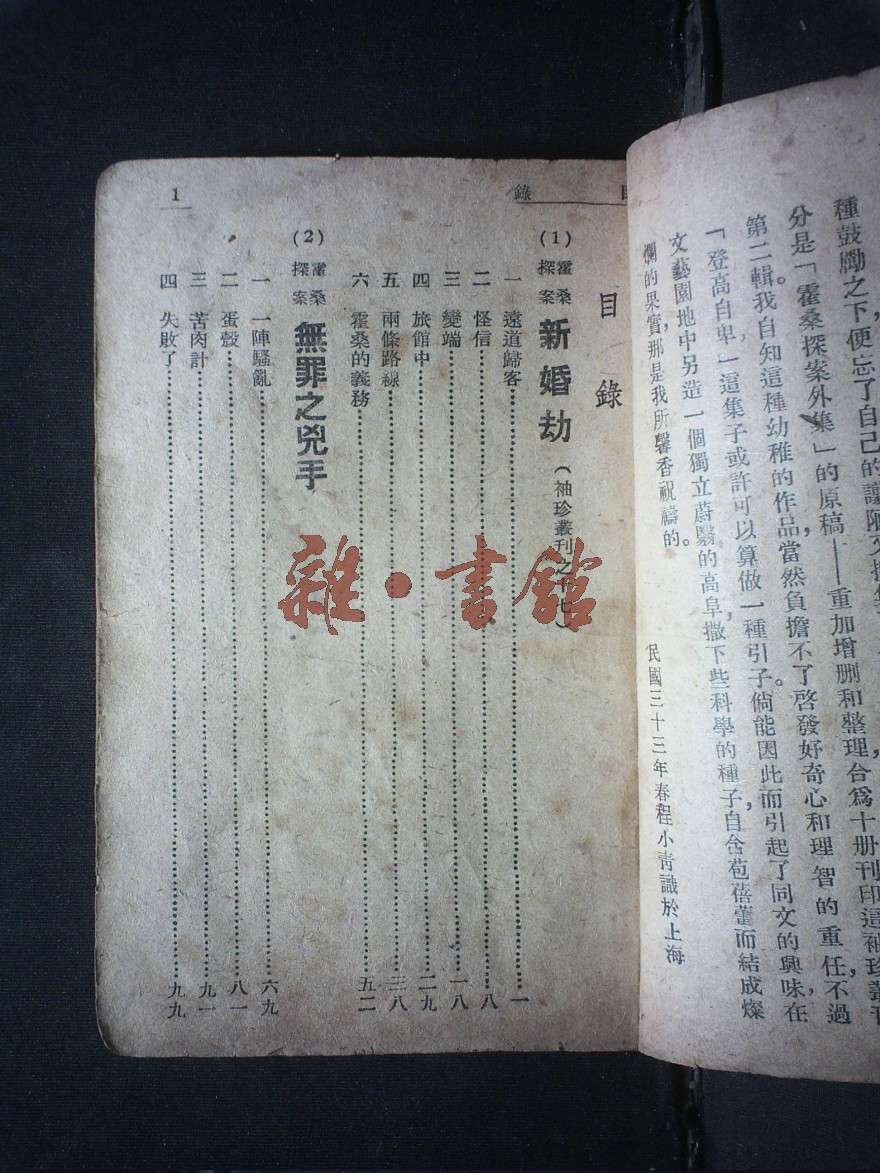 種鼓勵之下便忘了自己的謭陋又搜集
分是「霍桑探案外集」的原稿——重加增刪和整理合爲十册刊印這袖珍叢刊
第二輯我自知這種幼稚的作品當然負擔不了啓發好奇心和理智的重任,不過
「登高自卑,」這集子或許可以算做一種引子倘能因此而引起了同文的興味在
文藝園地中另造一個獨立蔚翳的高阜,撒下些科學的種子自含苞蓓蕾而結成燦
爛的果實,那是我所馨香祝禱的。
民國三十三年春程小青識於上海
目錄
1
目錄
(1) 霍桑探案 新婚劫 (袖珍叢刊之十七)
一 遠道歸客……一
二 怪信……八
三 變端……一八
四 旅館中……二九
五 兩條路線……三八
六 霍桑的義務……五二
(2) 霍桑探案 無罪之兇手
一 一陣騷亂……六九
二 蛋殼……八一
三 苦肉計……九一
四 失敗了……九九
雜·書館